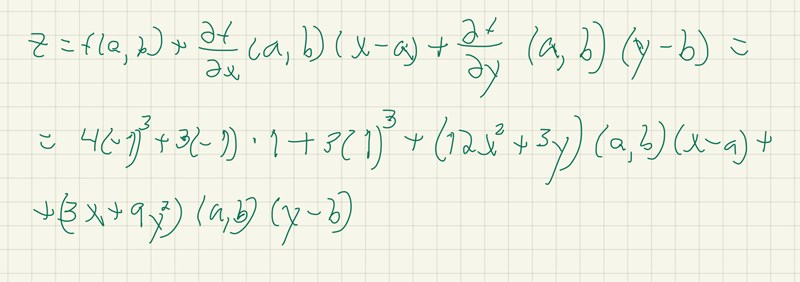 z = f(a, b) + ∂f/∂x (a, b) (x-a) + ∂f/∂y (a, b) (y-b) =
= 4(-1)³ + 3(-1) · 1 + 3(1)³ + (12x² + 3y) (a, b) (x-a) +
+ (3x + 9y²) (a, b) (y-b)